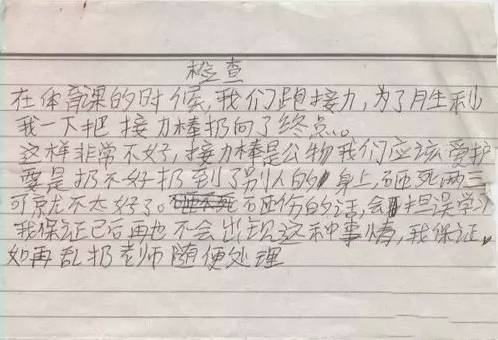 检查
在体育课的时候,我们跑接力,为了月生利
我一下把接力棒扔向了终点。。
这样非常不好,接力棒是公物我们应该爱护
要是扔不好扔到了别人的身上,砸死两三
可就不太好了。砸伤的话,会担误学习
我保证已后再也不会出现这种事情,我保证
如再乱扔老师随便处理